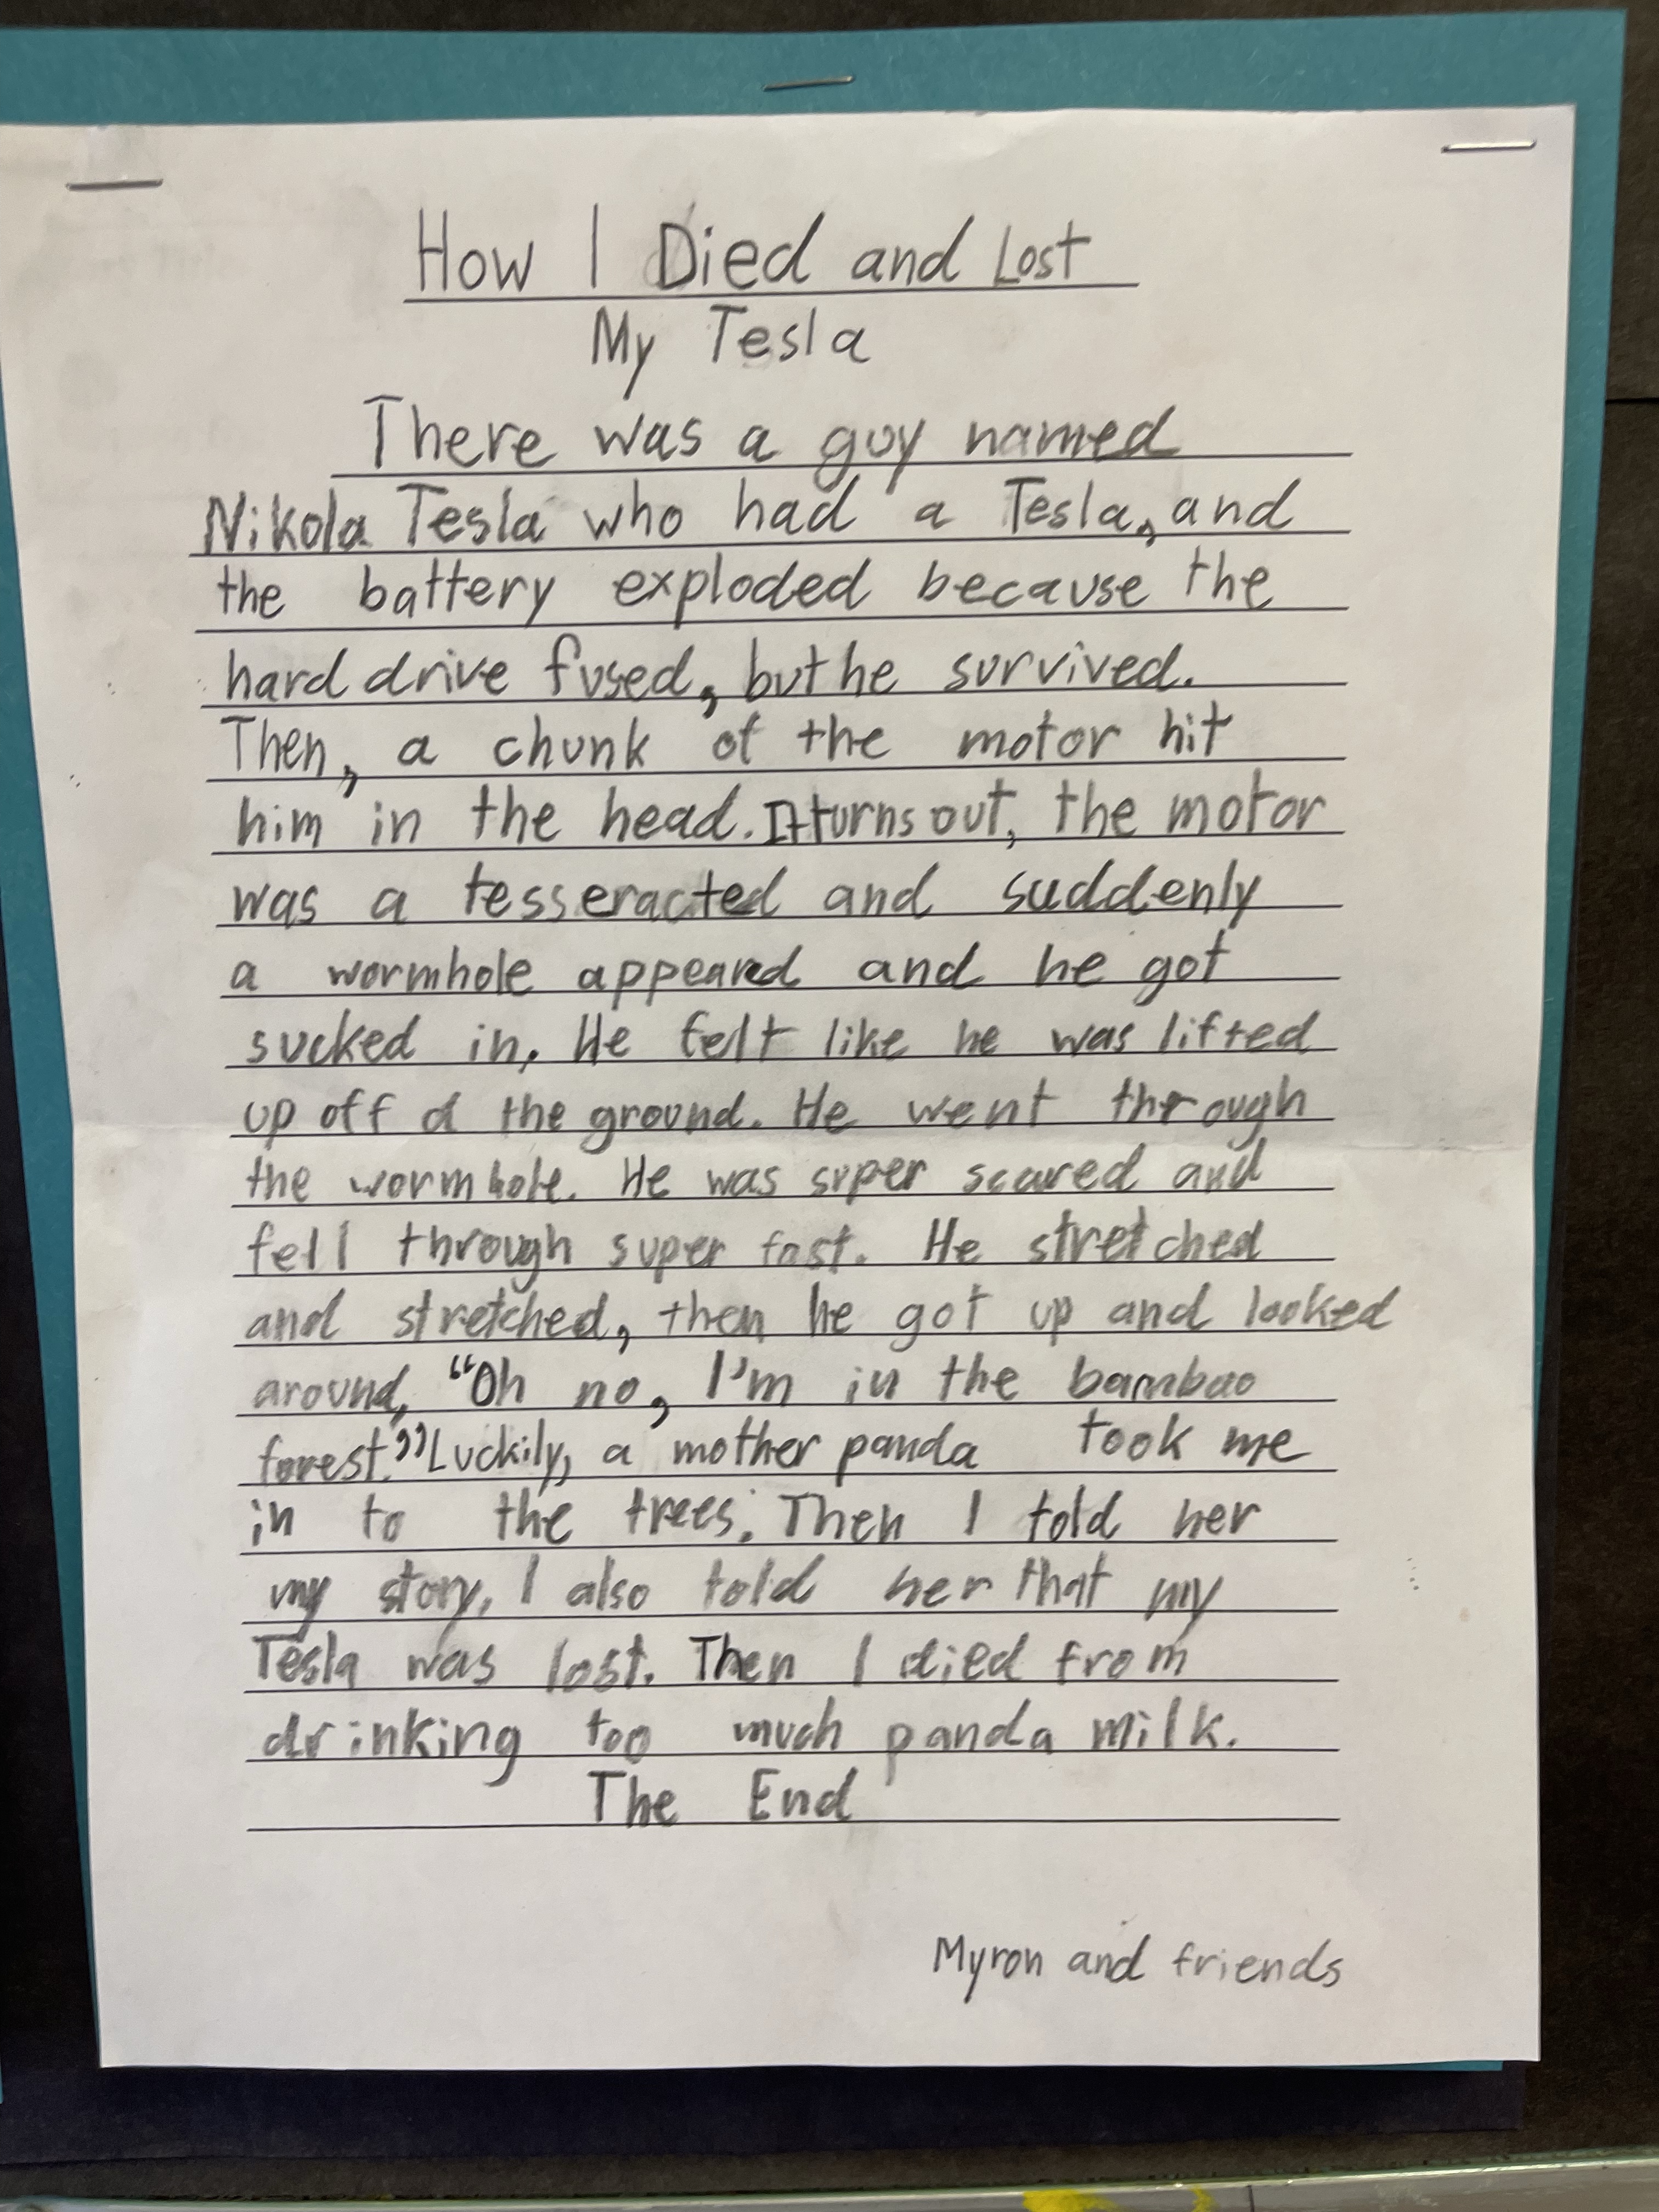 How I Died and Lost
My Tesla
There was a guy named
Nikola Tesla who had a Tesla, and
the battery exploded because the
hard drive fused, but he survived.
Then, a chunk of the motor hit
him in the head. It turns out, the motor
was a tesseracted and suddenly
a wormhole appeared and he got
sucked in. He felt like he was lifted
up off d the ground. He went through
the wormhole. He was super scared and
fell through super fast. He stretched
and stretched, then he got up and looked
around, “Oh no, I'm in the bamboo
forest.” Luckily, a mother panda took me
in to the trees. Then I told her
my story, I also told her that my
Tesla was lost. Then I died from
drinking too much panda milk.
The End
Myron and friends